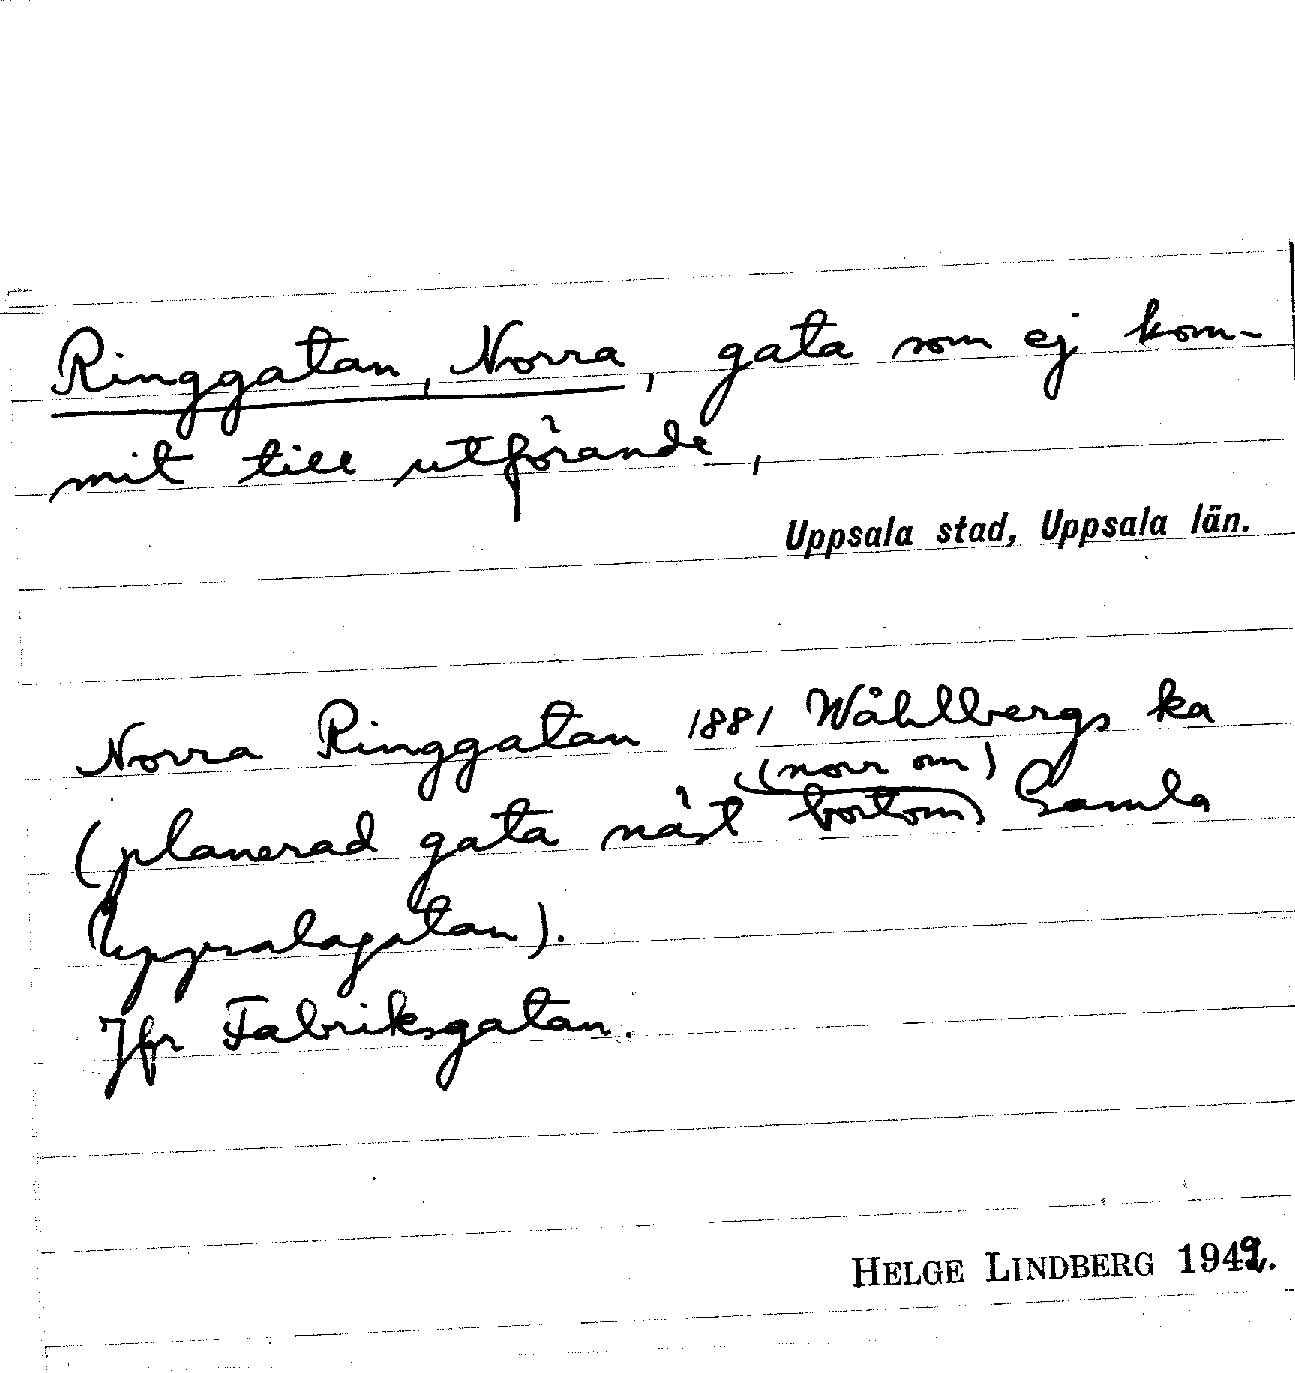 Ringgatan, Norra, gata som ej kom-
mit till utförande,
Uppsala stad, Uppsala län.
Norra Ringgatan 1881 Wåhlbergs ka
(norr om)
(planerad gata näst bortom Gamla
Uppsalagatan).
Jfr Fabriksgatan.
HELGE LINDBERG 1949.